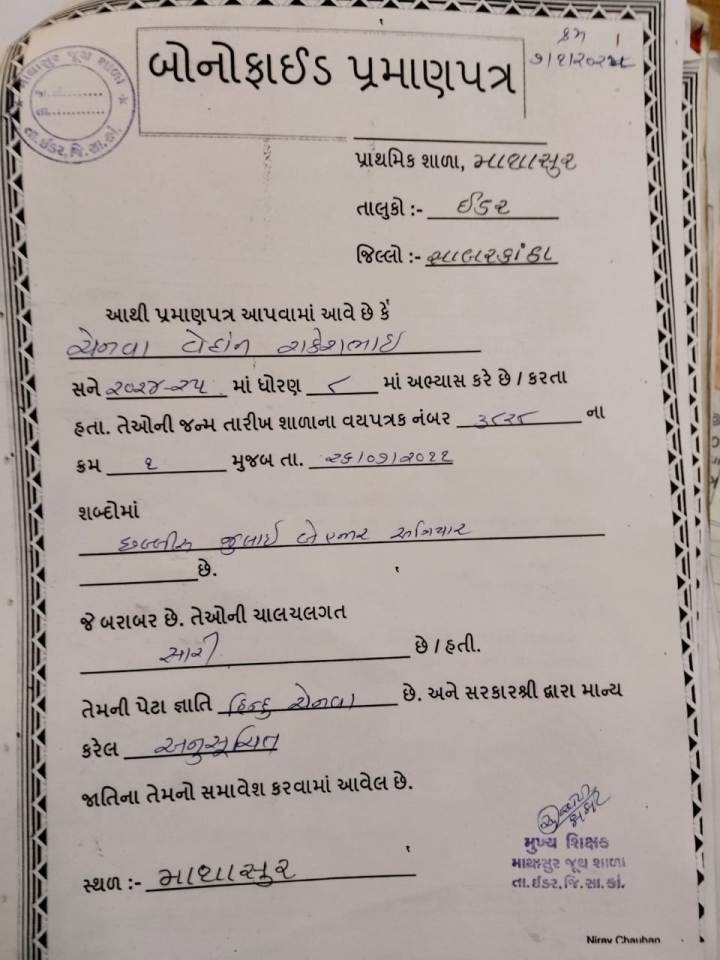 માથાસુર જૂથ શાળા
ક્ર.
તા.
તા.ઇડર,જિ.સા.કાં.
બોનોફાઈડ પ્રમાણપત્ર
ક્રમ ૧
પ્રાથમિક શાળા, માથાસુર
તાલુકો :- ઈડર
જિલ્લો :- સાબરકાંઠા
આથી પ્રમાણપત્ર આપવામાં આવે છે કે
ચેનવા વેદાંત રાકેશભાઇ
સને ૨૦૨૪-૨૫ માં ધોરણ ૮ માં અભ્યાસ કરે છે / કરતા
હતા. તેઓની જન્મ તારીખ શાળાના વયપત્રક નંબર ના
ક્રમ ૧ મુજબ તા. ૨૬/૦૭/૨૦૧૧
શબ્દોમાં
છવ્વીસ જુલાઇ બે હજાર અગિયાર
છે.
જે બરાબર છે. તેઓની ચાલચલગત
સારી છે / હતી.
તેમની પેટા જ્ઞાતિ હિન્દુ ચેનવા છે. અને સરકારશ્રી દ્વારા માન્ય
કરેલ અનુસૂચિત
જાતિના તેમનો સમાવેશ કરવામાં આવેલ છે.
મુખ્ય શિક્ષક
માથાસુર જૂથ શાળા
તા.ઇડર,જિ.સા.કાં.
સ્થળ :- માથાસુર
Nirav Chauhan